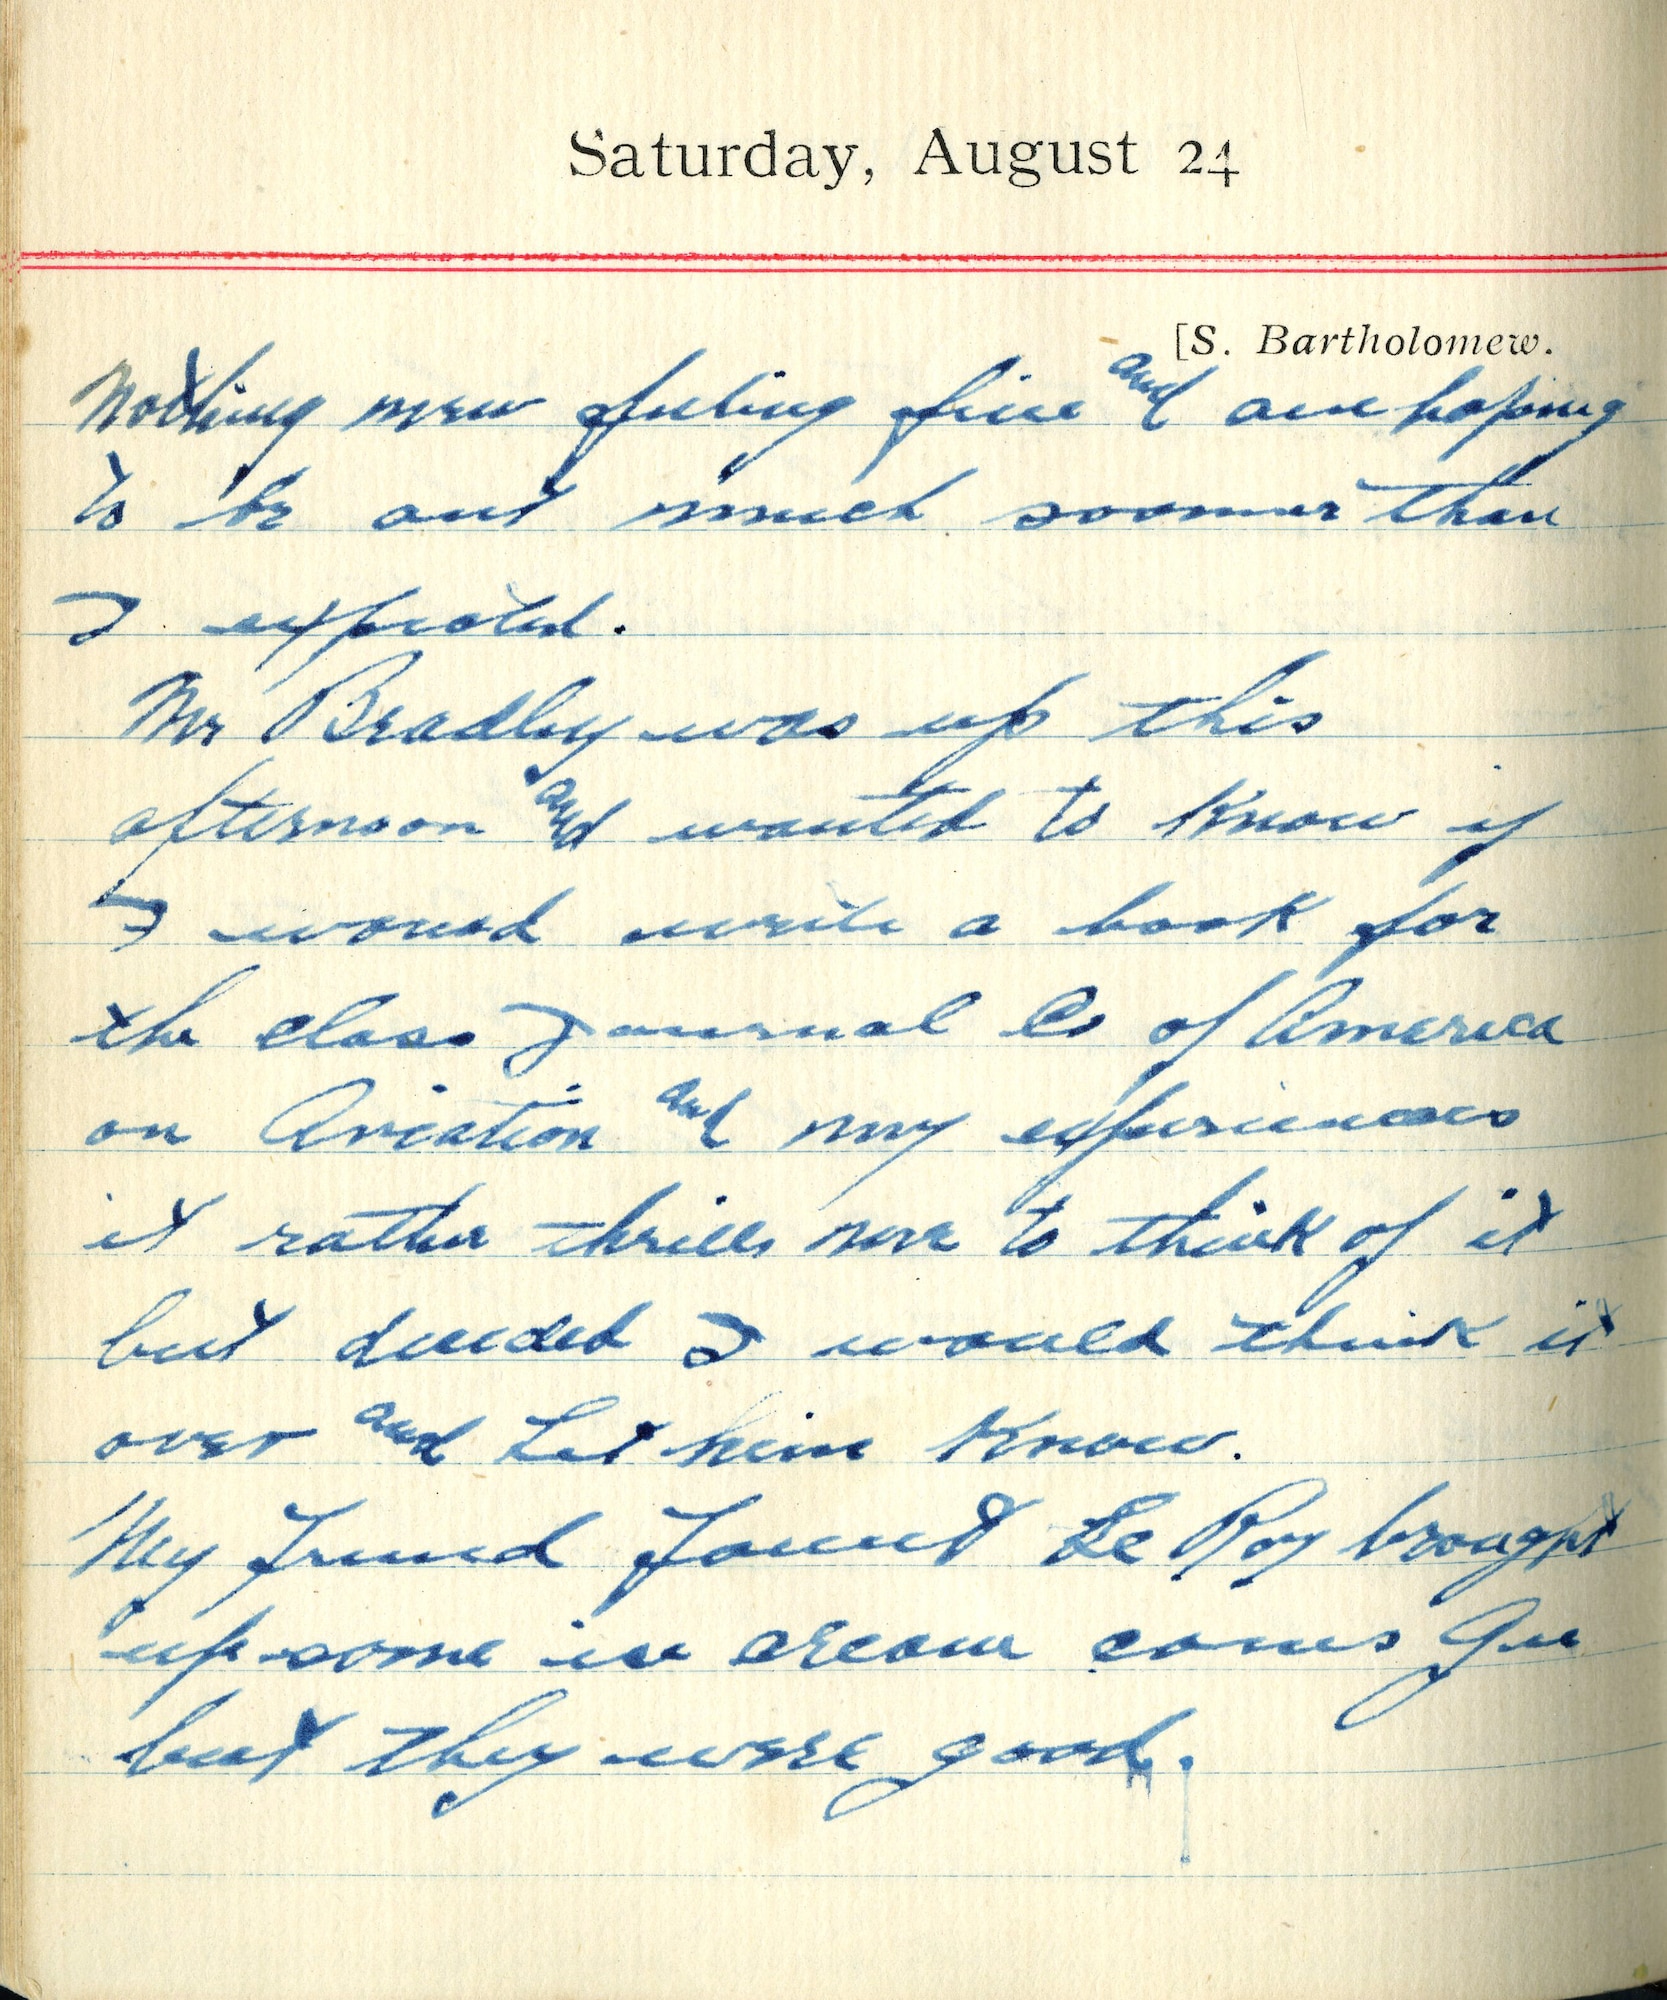 Saturday, August 24
[S. Bartholomew.
Nothing new feeling fine and am hoping
to be out much sooner than
I expected.
Mr Bradley was up this
afternoon and wanted to know if
I would write a book for
the class Journal Co of America
on Aviation and my experiences
it rather thrills me to think of it
but decided I would think it
over and Let him know.
My Friend Le Roy brought
up some ice cream cones Gee
but they were good.